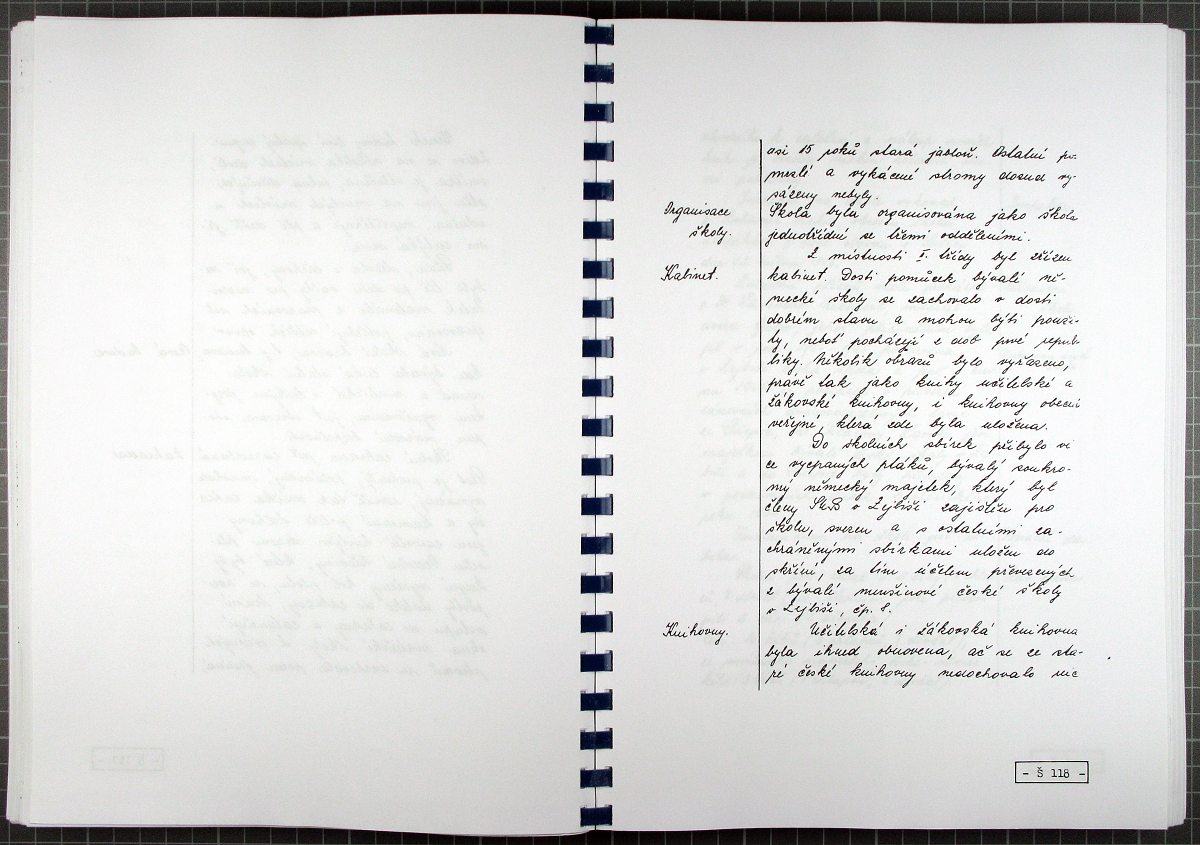 asi 15 roků stará jabloň. Ostatní po-
mrzlé a vykácené stromy dosud vy-
sázeny nebyly.
Organisace
školy.
Škola byla organisována jako škola
jednotřídní se třemi odděleními.
Z místnosti I. třídy byl zřízen
Kabinet.
kabinet. Dosti pomůcek bývalé ně-
mecké školy se zachovalo v dosti
dobrém stavu a mohou býti použi-
ty, neboť pocházejí z dob prvé repub-
liky. Několik obrazů bylo vyřazeno,
právě tak jako knihy učitelské a
žákovské knihovny, i knihovny obecní
veřejné, která zde byla uložena.
Do školních sbírek přibylo ví
ce vycpaných ptáků, bývalý soukro-
mý německý majetek, který byl
členy SNB v Zejbiši zajištěn pro
školu, svezen a s ostatními za-
chráněnými sbírkami uložen do
skříní, za tím účelem převezených
z bývalé menšinové české školy
v Zejbiši, čp. 8.
Knihovny.
Učitelská i žákovská knihovna
byla ihned obnovena, ač se ze sta-
ré české knihovny nedochovalo nic
- Š 118 -